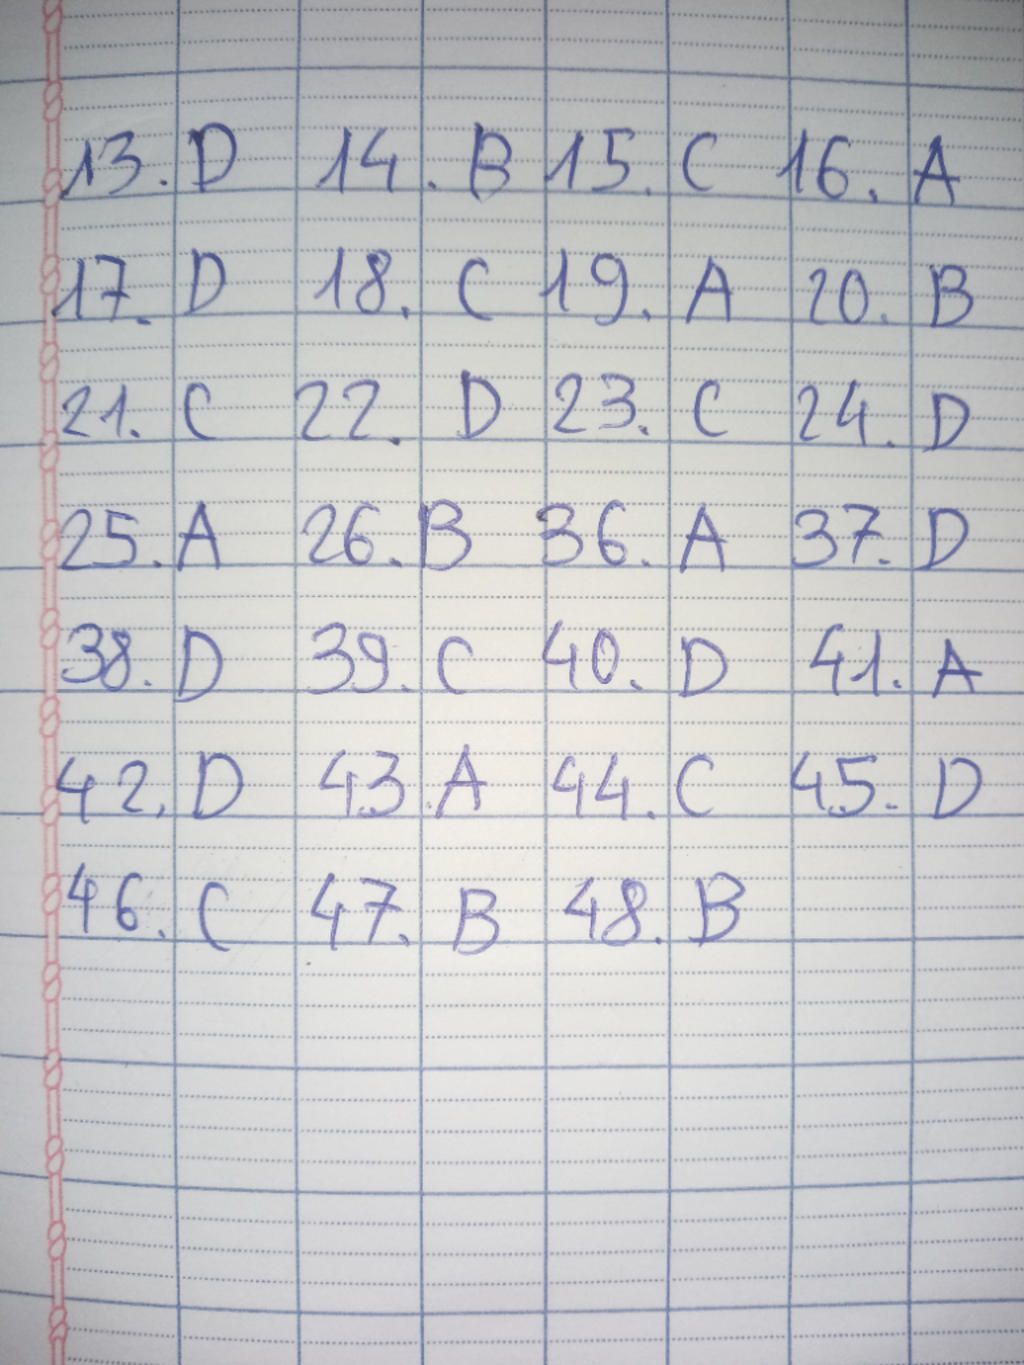 13. D 14. B 15. C 16. A
17. D 18. C 19. A 20. B
21. C 22. D 23. C 24. D
25. A 26. B 36. A 37. D
38. D 39. C 40. D 41. A
42. D 43. A 44. C 45. D
46. C 47. B 48. B